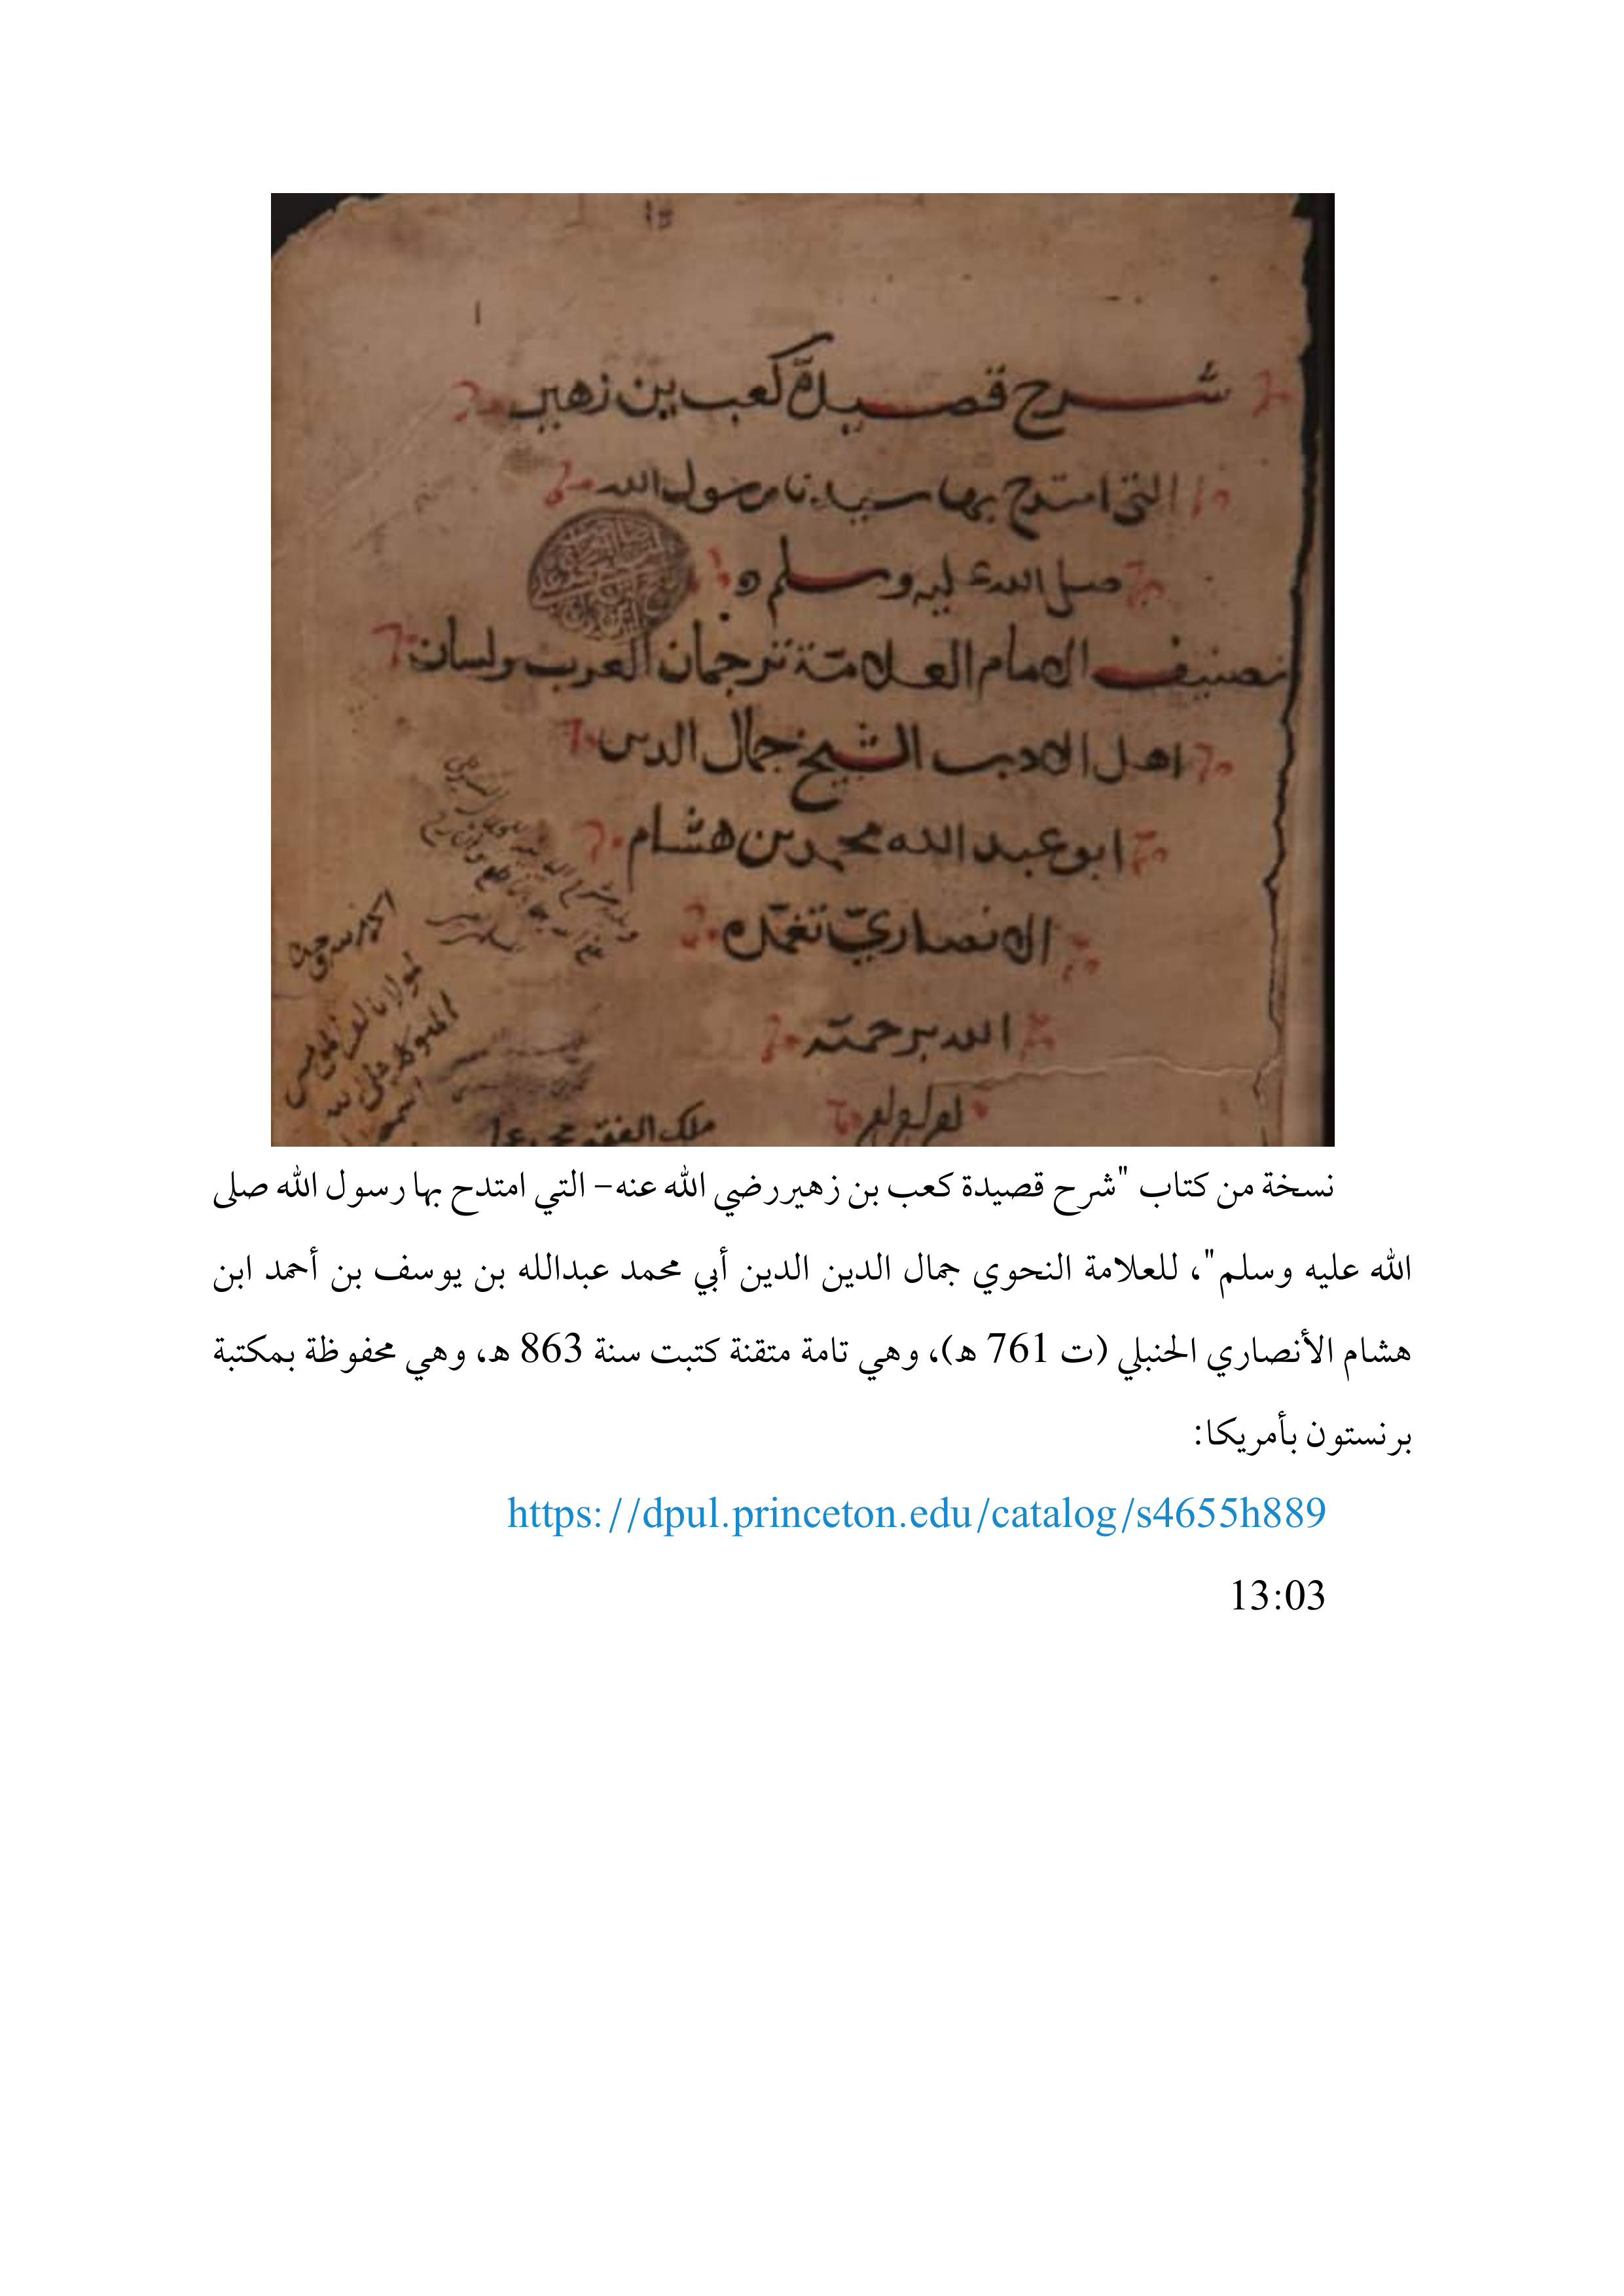 شرح قصيدة كعب بن زهير
التي امتدح بها سيدنا رسول الله
صلى الله عليه وسلم
تصنيف الامام العلامة ترجمان العرب ولسان
اهل الادب الشيخ جمال الدين
ابو عبد الله محمد بن هشام
الانصاري تغمده
الله برحمته
ملك الفقير
نسخة من كتاب "شرح قصيدة كعب بن زهير رضي الله عنه- التي امتدح بها رسول الله صلى
الله عليه وسلم"، للعلامة النحوي جمال الدين الدين أبي محمد عبدالله بن يوسف بن أحمد ابن
هشام الأنصاري الحنبلي (ت 761 هـ)، وهي تامة متقنة كتبت سنة 863 هـ، وهي محفوظة بمكتبة
برنستون بأمريكا:
https://dpul.princeton.edu/catalog/s4655h889
13:03